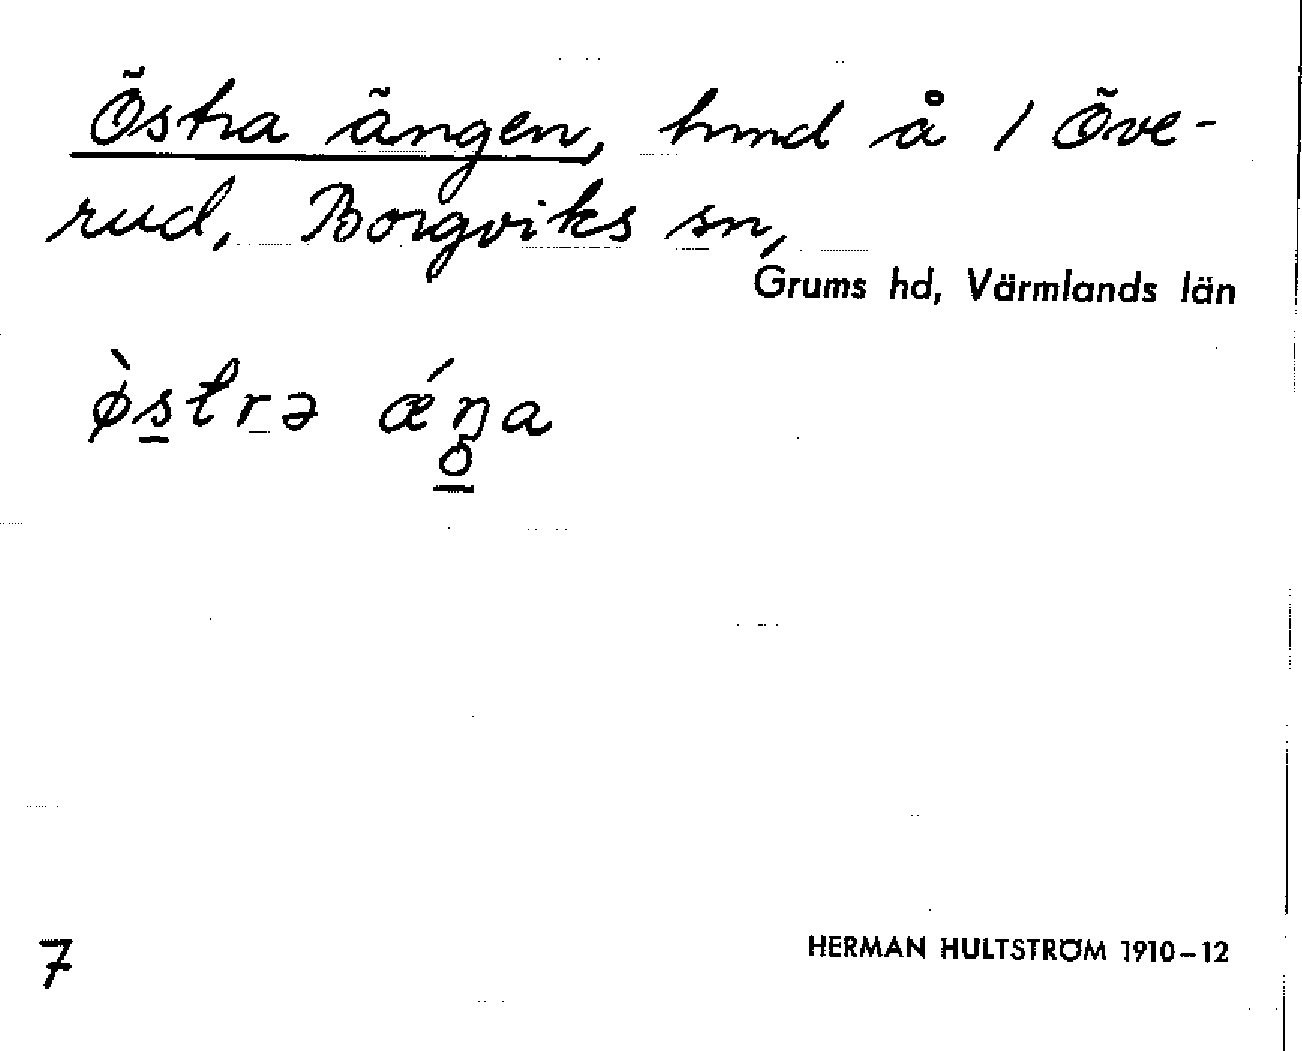 Östra ängen, hmd å 1 Öve-
rud, Borgviks sn,
Grums hd, Värmlands län
ø̀s̠tr̠ə ǽŋ̥̠a
7
HERMAN HULTSTRÖM 1910–12